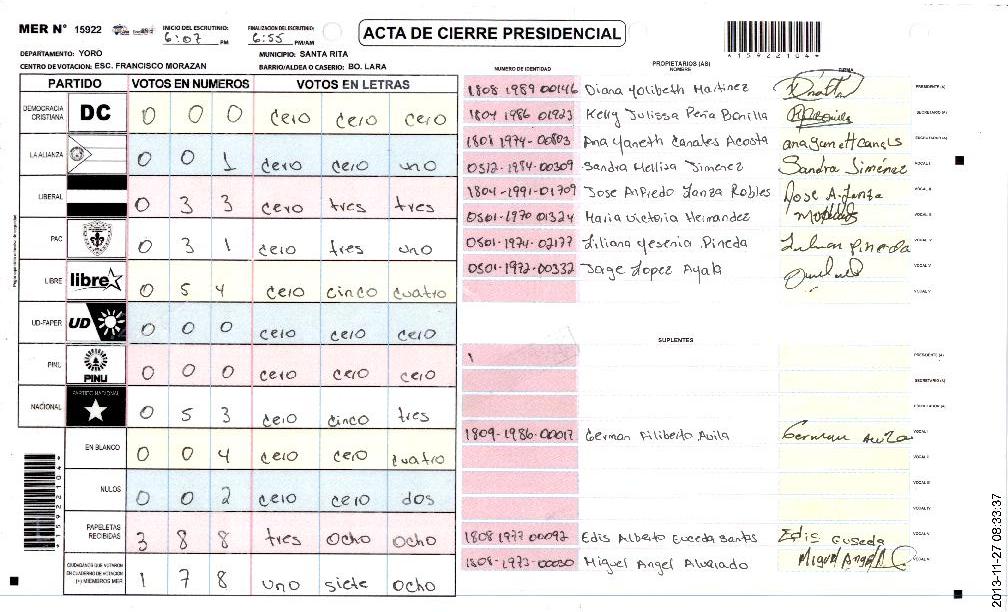 MER N° 15922
INICIO DEL ESCRUTINIO: 6:07 PM
FINALIZACION DEL ESCRUTINIO: 6:55 PM/AM
ACTA DE CIERRE PRESIDENCIAL
*15922104*
DEPARTAMENTO: YORO
MUNICIPIO: SANTA RITA
CENTRO DE VOTACION: ESC. FRANCISCO MORAZAN
BARRIO/ALDEA O CASERIO: BO. LARA
PARTIDO VOTOS EN NUMEROS VOTOS EN LETRAS
DEMOCRACIA CRISTIANA DC 0 0 0 cero cero cero
LA ALIANZA 0 0 1 cero cero uno
LIBERAL 0 3 3 cero tres tres
PAC 0 3 1 cero tres uno
LIBRE libre 0 5 4 cero cinco cuatro
UD-FAPER UD 0 0 0 cero cero cero
PINU PINU 0 0 0 cero cero cero
NACIONAL PARTIDO NACIONAL 0 5 3 cero cinco tres
EN BLANCO 0 0 4 cero cero cuatro
NULOS 0 0 2 cero cero dos
PAPELETAS RECIBIDAS 3 8 8 tres ocho ocho
CIUDADANOS QUE VOTARON EN CUADERNO DE VOTACION (+) MIEMBROS MER 1 7 8 uno siete ocho
*15922104*
PROPIETARIOS (AS)
NUMERO DE IDENTIDAD NOMBRE FIRMA
1808 1989 00146 Diana Yolibeth Martinez PRESIDENTE (A)
1804 1986 01923 Kelly Julissa Peña Bonilla SECRETARIO (A)
1801 1974-00803 Ana Yaneth Canales Acosta
0512-1984-00309 Sandra Mellisa Jimenez Sandra Siménez VOCAL I
1804-1991-01709 Jose Alfredo Lanza Robles
0501-1970 01324 Maria Victoria Hernandez
0501-1974-02177 Liliana Yesenia Pineda
0501-1972-00332 Jorge Lopez Ayala
SUPLENTES
PRESIDENTE (A)
SECRETARIO (A)
1809-1986-00017 German Filiberto Avila German Avila VOCAL I
1808 1977 00092 Edis Alberto Euceda Santos Edis Euseda
1808-1973-00030 Miguel Angel Alvarado Miguel Angel A.
2013-11-27 08:33:37